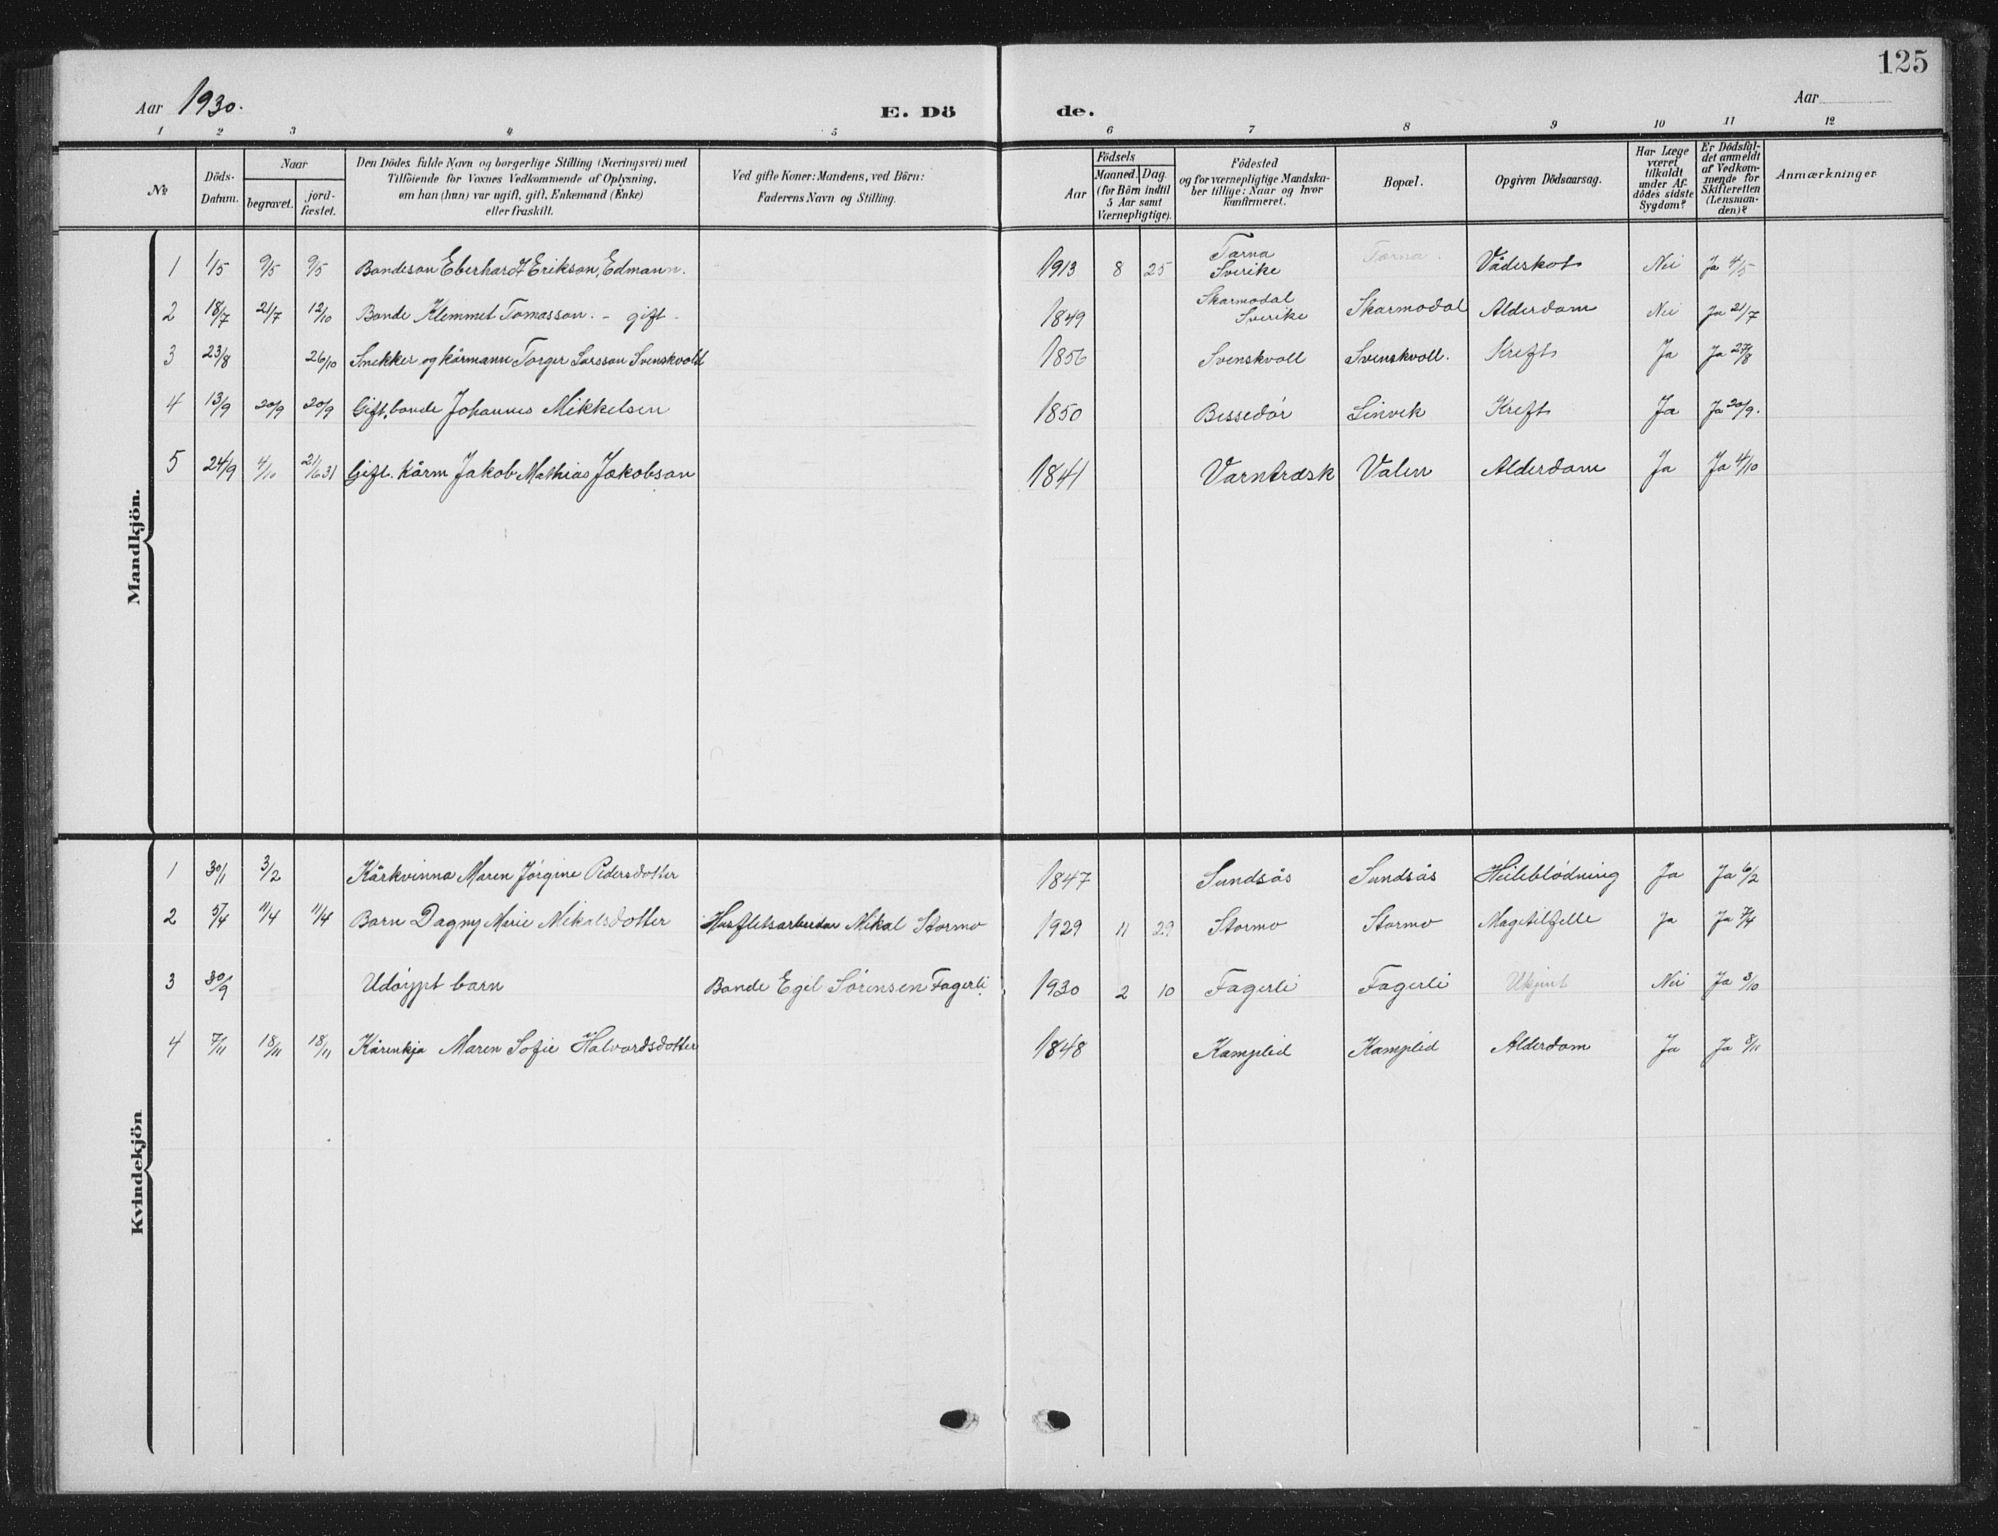 125
Aar 1930.
E. Dö
de.
Aar
1 2 3 4 5 6 7 8 9 10 11 12
№
Döds-
Datum.
Naar
begravet.
jord-
fæstet.
Den Dödes fulde Navn og borgerlige Stilling (Næringsvei) med
Tilföiende for Voxnes Vedkommende af Oplysning,
om han (hun) var ugift, gift, Enkemand (Enke)
eller fraskilt.
Ved gifte Koner: Mandens, ved Börn:
Faderens Navn og Stilling.
Födsels
Aar
Maaned. Dag
(for Börn indtil
5 Aar samt
Værnepligtige).
Födested
og for værnepligtige Mandska-
ber tillige: Naar og hvor
konfirmeret.
Bopæl.
Opgiven Dödsaarsag.
Har Læge
været
tilkaldt
under Af-
dödes sidste
Sygdom?
Er Dödsfal-
det anmeldt
af Vedkom-
mende for
Skifteretten
(Lensman-
den)?
Anmærkninger
Mandkjön.
1 1/5 9/5 9/5 Bondeson Eberhard Erikson, Edmann. 1913 8 25 Tärna Sverike Tärna. Vådeskot Nei Ja 4/5
2 18/7 21/7 12/10 Bonde Klemmet Tomasson. - gift - 1849 Skarmodal Sverike Skarmodal Alderdom Nei Ja 21/7
3 23/8 26/10 Snekker og kårmann Torger Larsson Svenskvold 1856 Svenskvoll Svenskvoll. Kreft Ja Ja 27/8
4 13/9 20/9 20/9 Gift, bonde Johannes Mikkelsen 1850 Bessedør Linvik Kreft Ja Ja 20/9.
5 24/9 4/10 21/6 31 Gift. kårm Jakob Mathias Jakobson 1841 Varntræsk Valen Alderdom Ja Ja 4/10
Kvindekjön
1 30/1 3/2 Kårkvinna Maren Jørgine Pedersdotter 1847 Sundsås Sundsås Heileblødning Ja Ja 6/2
2 5/4 11/4 11/4 Barn Dagny Marie Mikalsdotter Husflitsarbeidar Mikal Stormo 1929 11 29 Stormo Stormo Magetilfelle Ja Ja 7/4
3 30/9 Udøypt barn Bonde Egil Sørensen Fagerli. 1930 2 10 Fagerli Fagerli Ukjent Nei Ja 3/10
4 7/11 18/11 18/11 Kårenkja Maren Sofie Halvardsdotter 1848 Kamplid Kamplid Alderdom Ja Ja 8/11